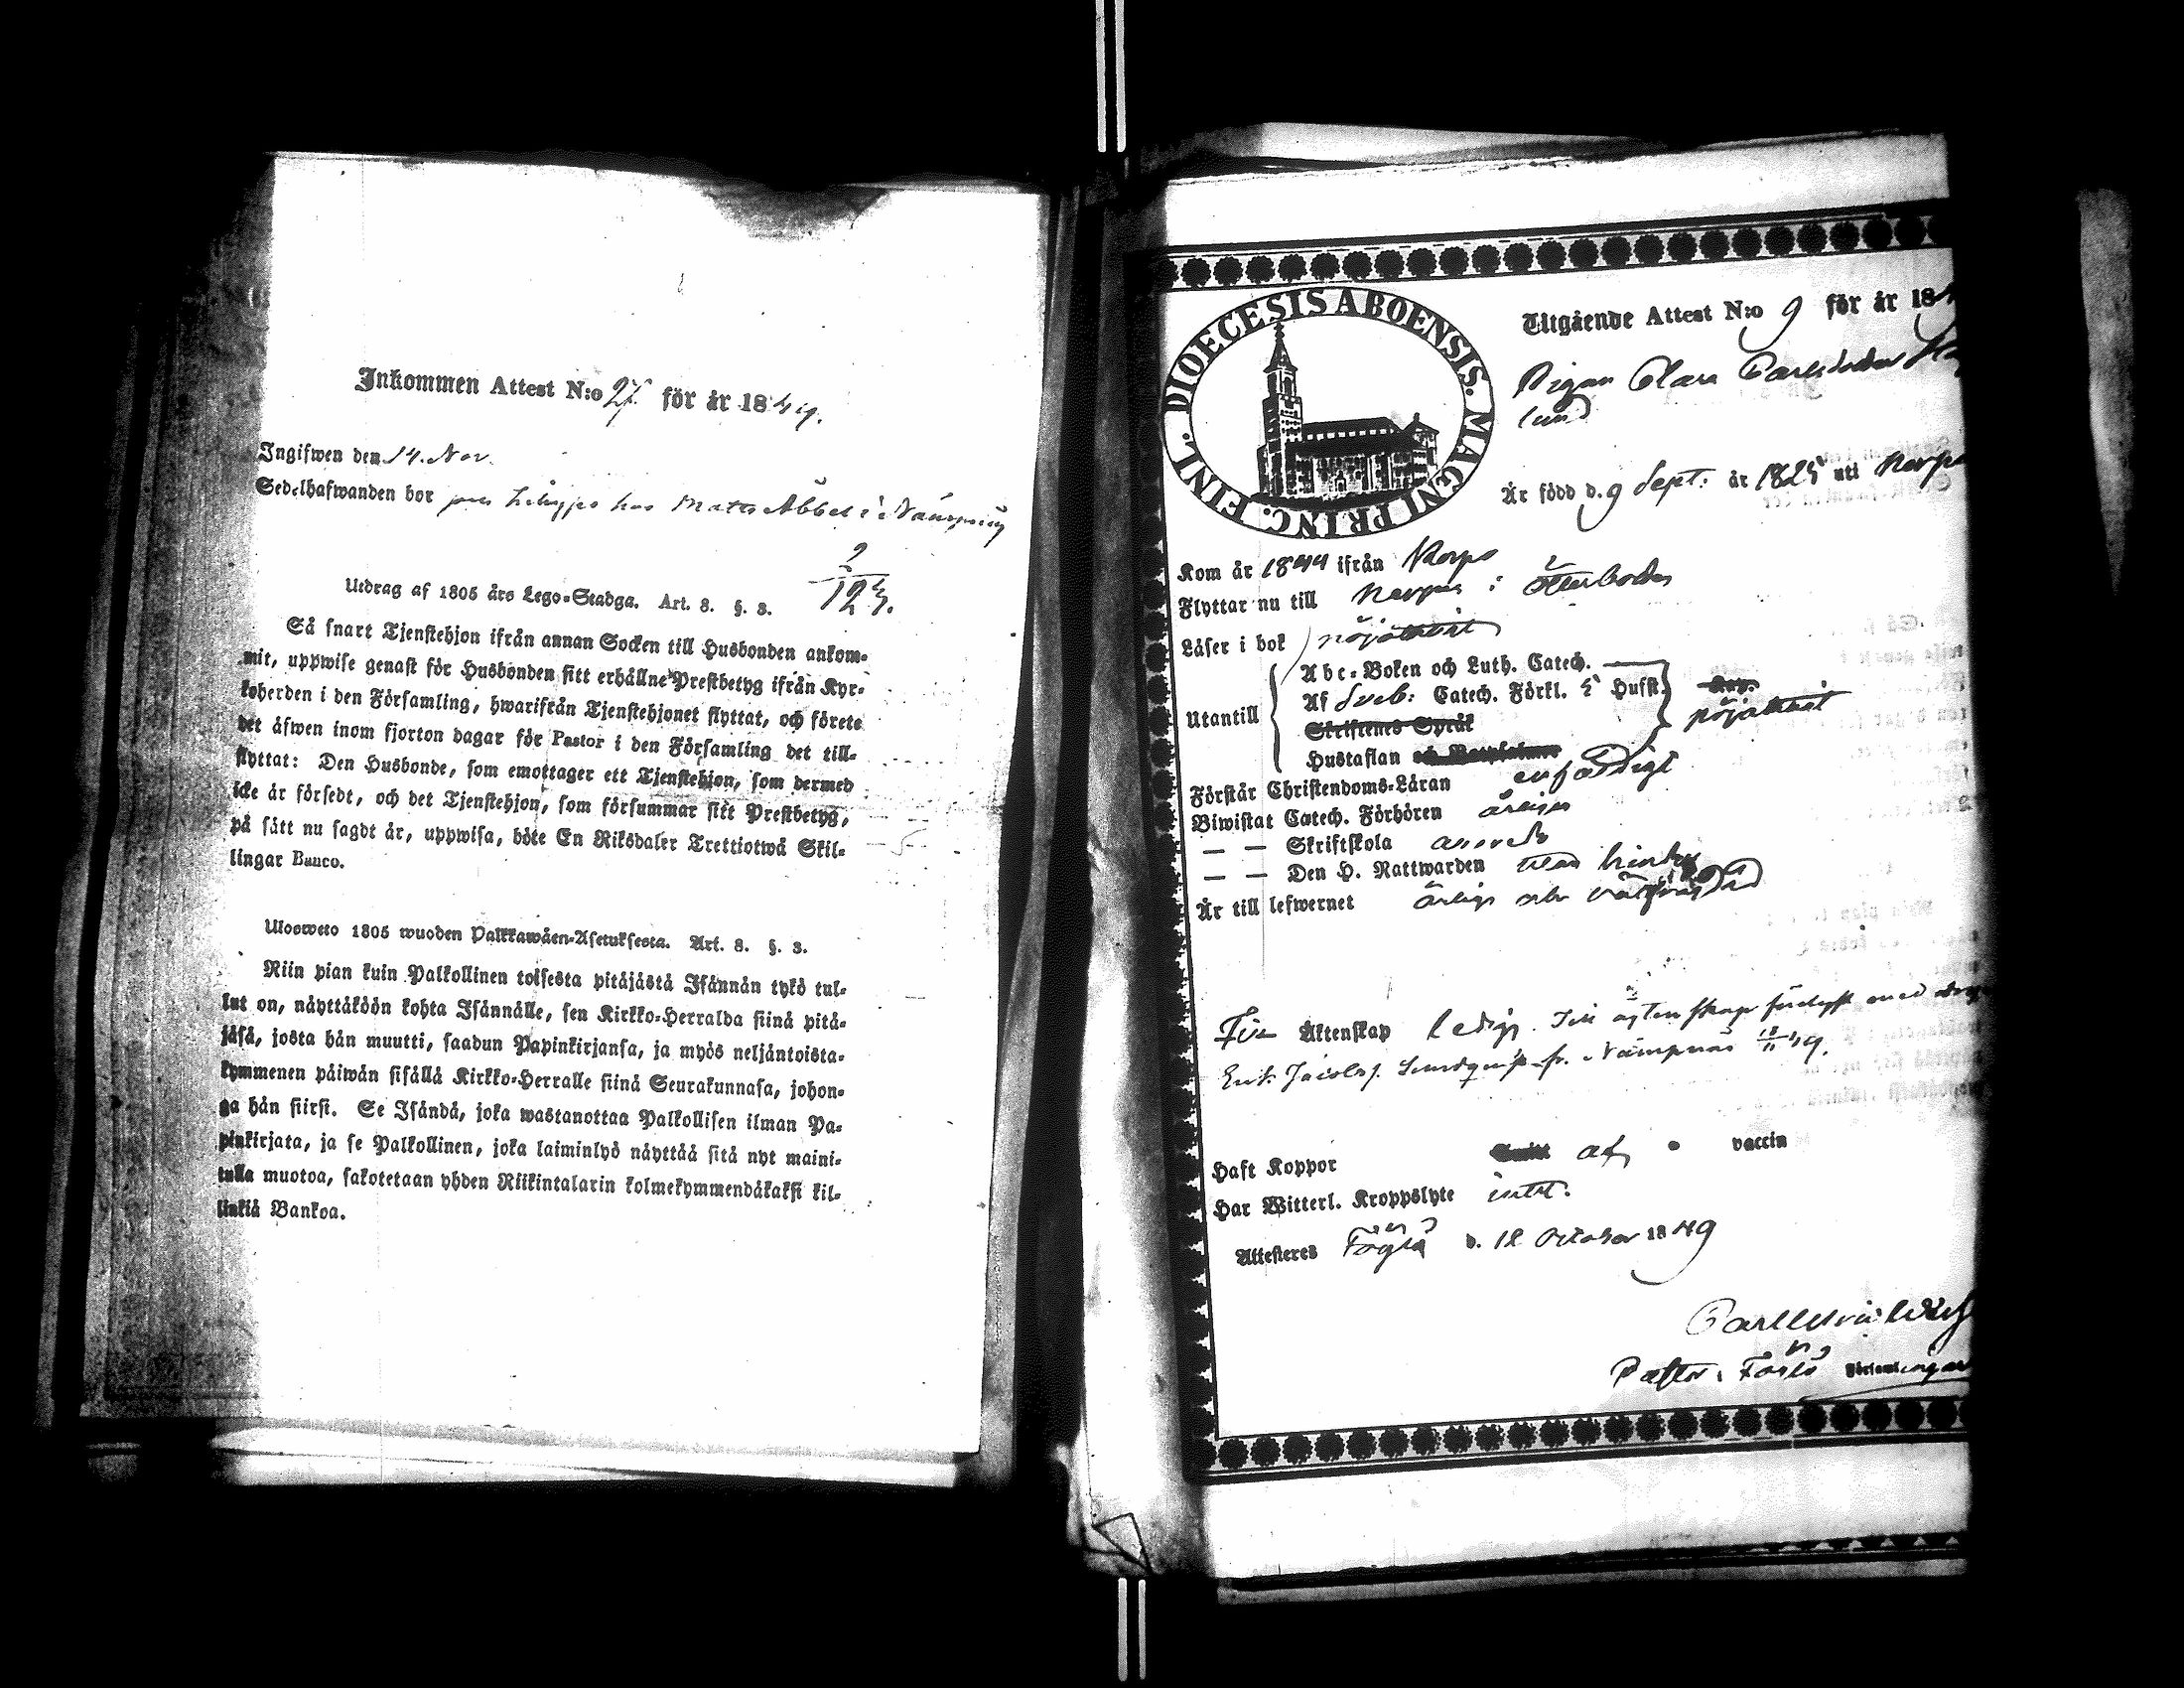 Inkommen Attest N:o 27 för år 1849.
Ingifwen den 14. Nov.
Sedelhafwanden bor hos Matts Abbel i Nämpnäs
2
123.
Utdrag af 1805 års Lego-Stadga. Art. 8. §. 3.
Så snart Tjenstehjon ifrån annan Socken till Husbonden ankom-
mit, uppwise genast för Husbonden sitt erhållne Prestbetyg ifrån Kyr-
koherden i den Församling, hwarifrån Tjenstehjonet flyttat, och förete
det äfwen inom fjorton dagar för Pastor i den Församling det till-
flyttat: Den Husbonde, som emottager ett Tjenstehjon, som dermed
icke är försedt, och det Tjenstehjon, som försummar sitt Prestbetyg,
på sätt nu sagdt är, uppwisa, böte En Riksdaler Trettiotwå Skil-
lingar Banco.
Ulosweto 1805 wuoden Palkkawäen-Asetuksesta. Art. 8. §. 3.
Niin pian kuin Palkollinen toisesta pitäjästä Isännän tykö tul-
lut on, näyttäköön kohta Isännälle, sen Kirkko-Herralda siinä pitä-
jäsä, josta hän muutti, saadun Papinkirjansa, ja myös neljäntoista-
kymmenen päiwän sisällä Kirkko-Herralle siinä Seurakunnasa, johon-
ga hän siirsi. Se Isändä, joka wastanottaa Palkollisen ilman Pa-
pinkirjata, ja se Palkollinen, joka laiminlyö näyttää sitä nyt maini-
tulla muotoa, sakotetaan yhden Riikintalarin kolmekymmendäkaksi kil-
linkiä Bankoa.
DIOECESIS ABOENSIS. MAGNI PRINC. FINL.
Utgående Attest N:o 9 för år 18
Pigan Clara Carlsdotter
lund
Är född d. 9 Sept: år 1825 uti Korpo
Kom år 1844 ifrån Korpo
Flyttar nu till Nerpes i Österbotten
Läser i bok nöjaktigt
Abc-Boken och Luth. Catech.
Utantill Af Sveb: Catech. Förkl. 5 Hufst. nöjaktigt
Skriftenes Språk
Hustaflan och Botpsalmer
Förstår Christendoms-Läran enfaldigt
Biwistat Catech. Förhören årligen
— — Skriftskola
— — Den H. Nattwarden utan hinder
Är till lefwernet ärlig och välfrägdad
För Äktenskap ledig. Till ägtenskap med
Erik Jacobss. fr. Nämpnäs 49.
Haft Koppor af vaccin
Har Witterl. Kroppslyte intet.
Attesteres Föglö d. 12 October 1849
Carl
Pastor i Föglö Församlingar